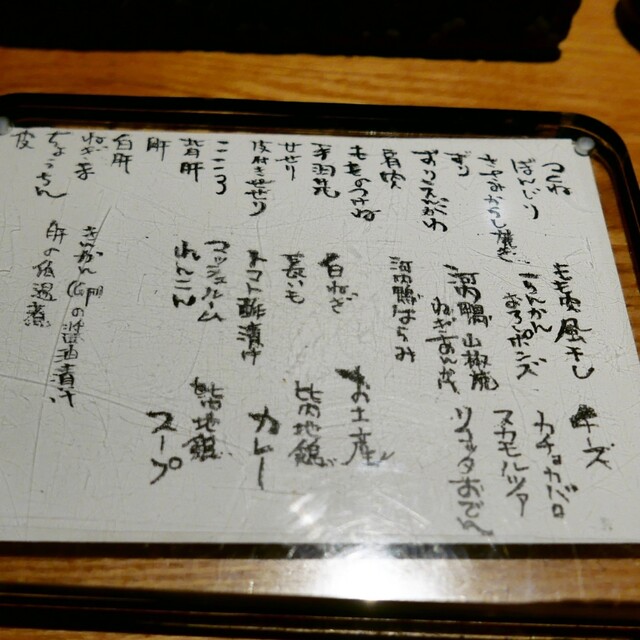 つくね
ぼんじり
ずり
ずりえんがわ
もものつけね
せせり
皮付きせせり
こころ
背肝
肝
白肝
ちょうちん
皮
もも肉風干し
きんかん
おろしポンズ
河内鴨 山椒焼
河内鴨はらみ
白ねぎ
長いも
トマト酢漬け
マッシュルーム
れんこん
きんかん(卵)の醤油漬け
肝の低温煮
チーズ
カチョカバロ
スカモルツァ
リコッタおでん
お土産
比内地鶏
カレー
比内地鶏
スープ